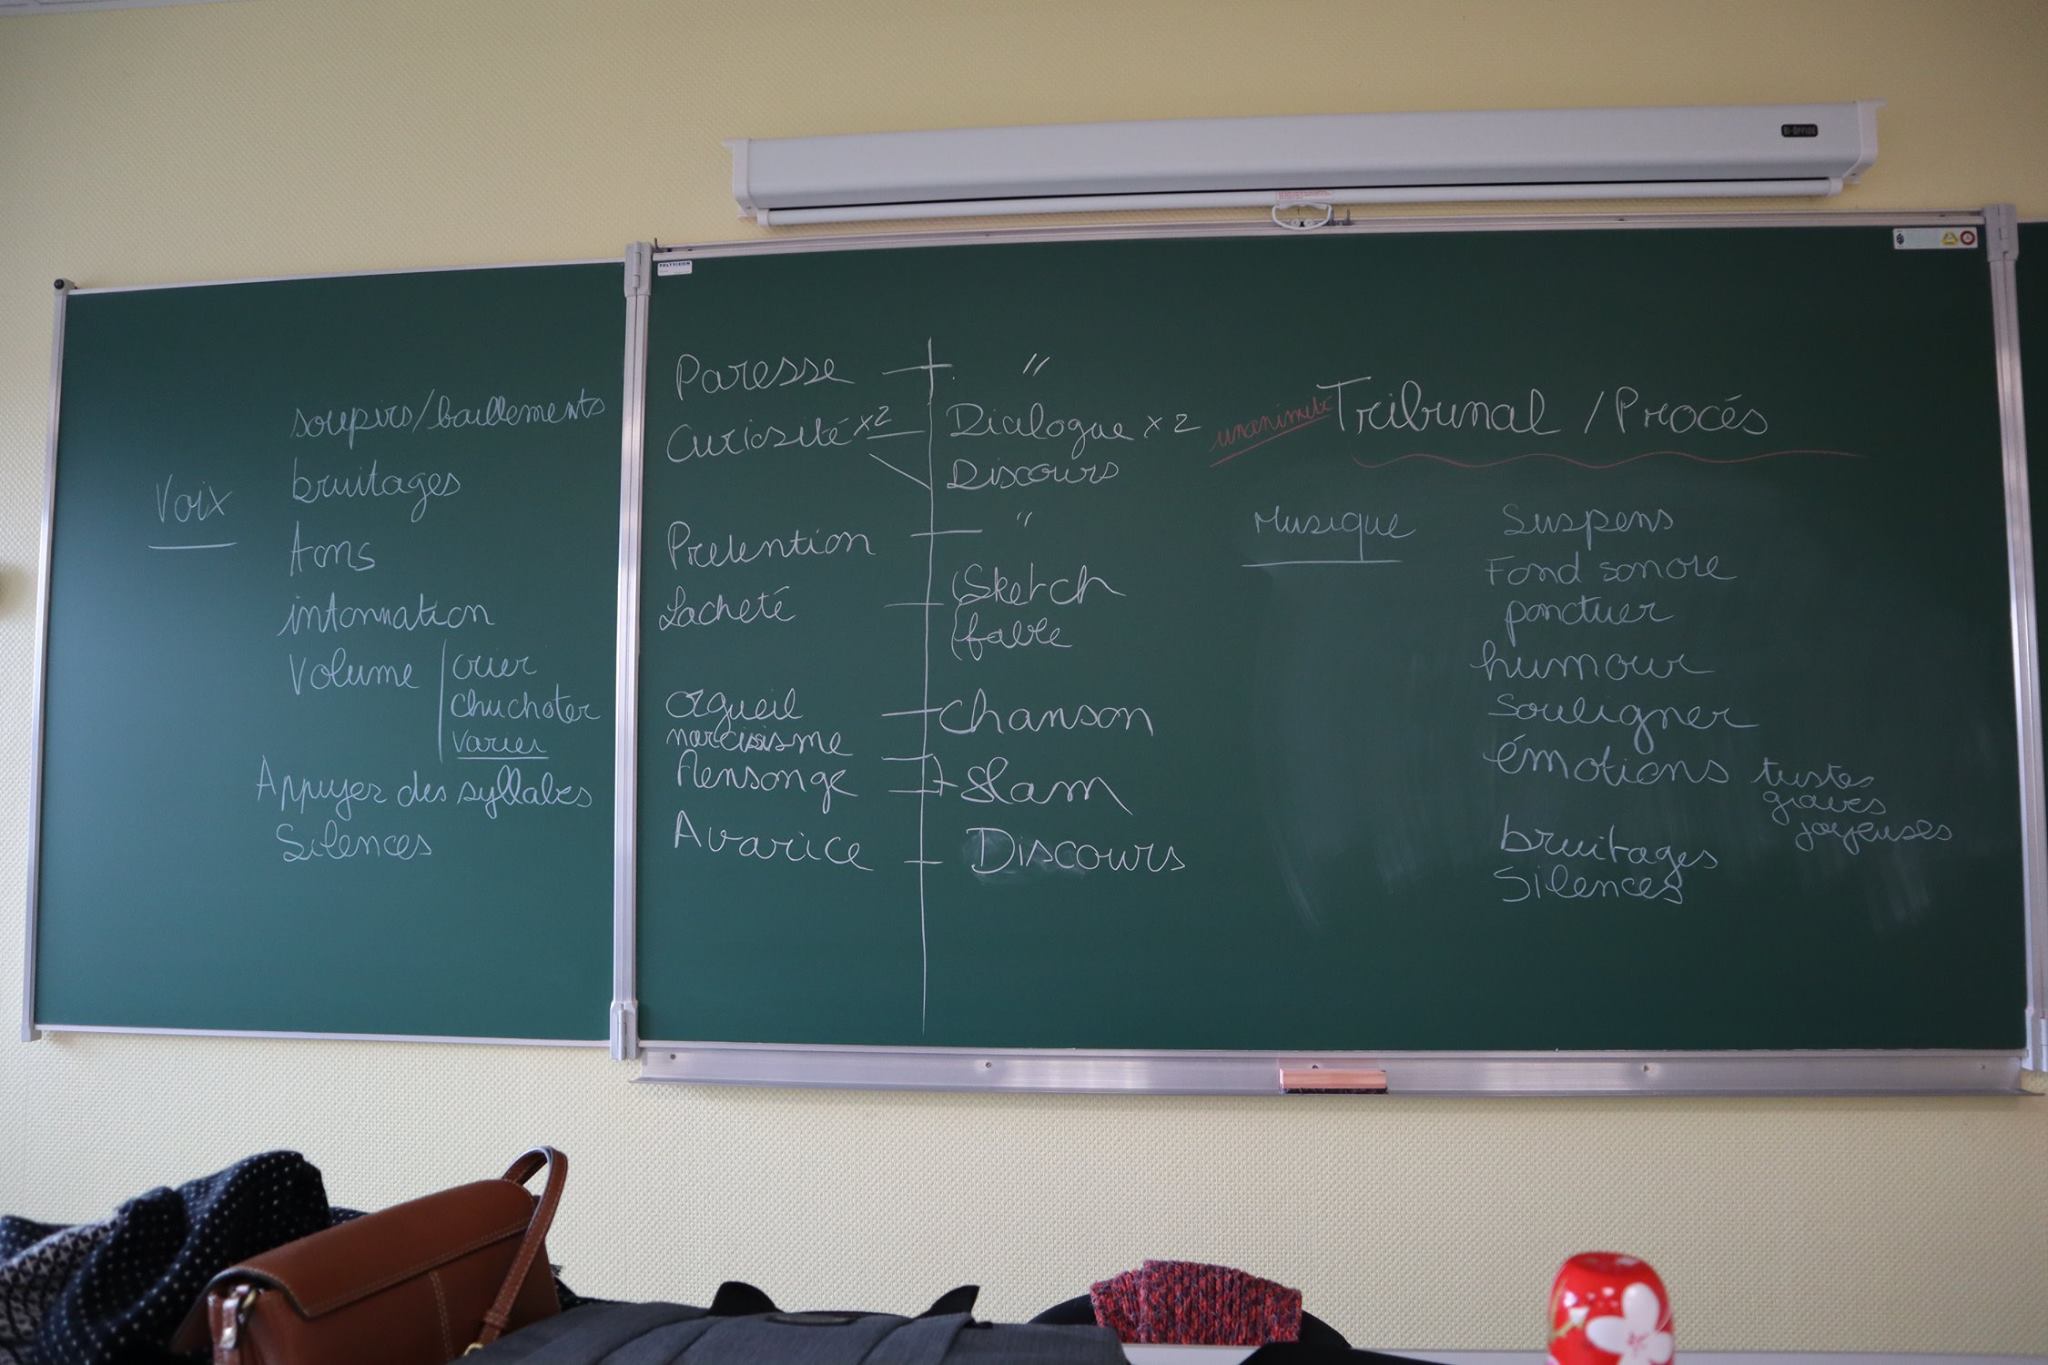 soupirs/baillements
Voix
bruitages
intonnation
Volume
crier
chuchoter
varier
Appuyer des syllabes
Silences
Paresse "
Curiosité x2 Dialogue x 2
Discours
Pretention "
Lacheté Sketch
fable
orgueil chanson
narcissisme
Mensonge Slam
Avarice Discours
unanimité Tribunal / Procés
Musique Suspens
Fond sonore
ponctuer
humour
souligner
émotions tristes
graves
joyeuses
bruitages
Silences